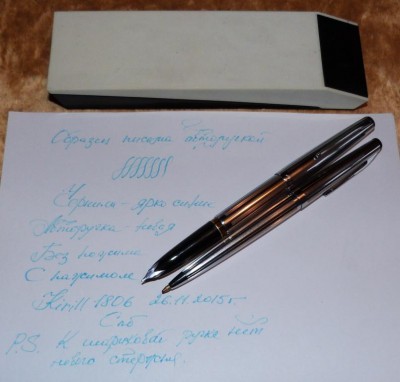 Образец письма авторучкой
Чернила - ярко синие
Авторучка - новая
Без нажима
С нажимом
Kirill 1806 26.11.2015г
Спб
P.S. К шариковой ручке нет
нового стержня.